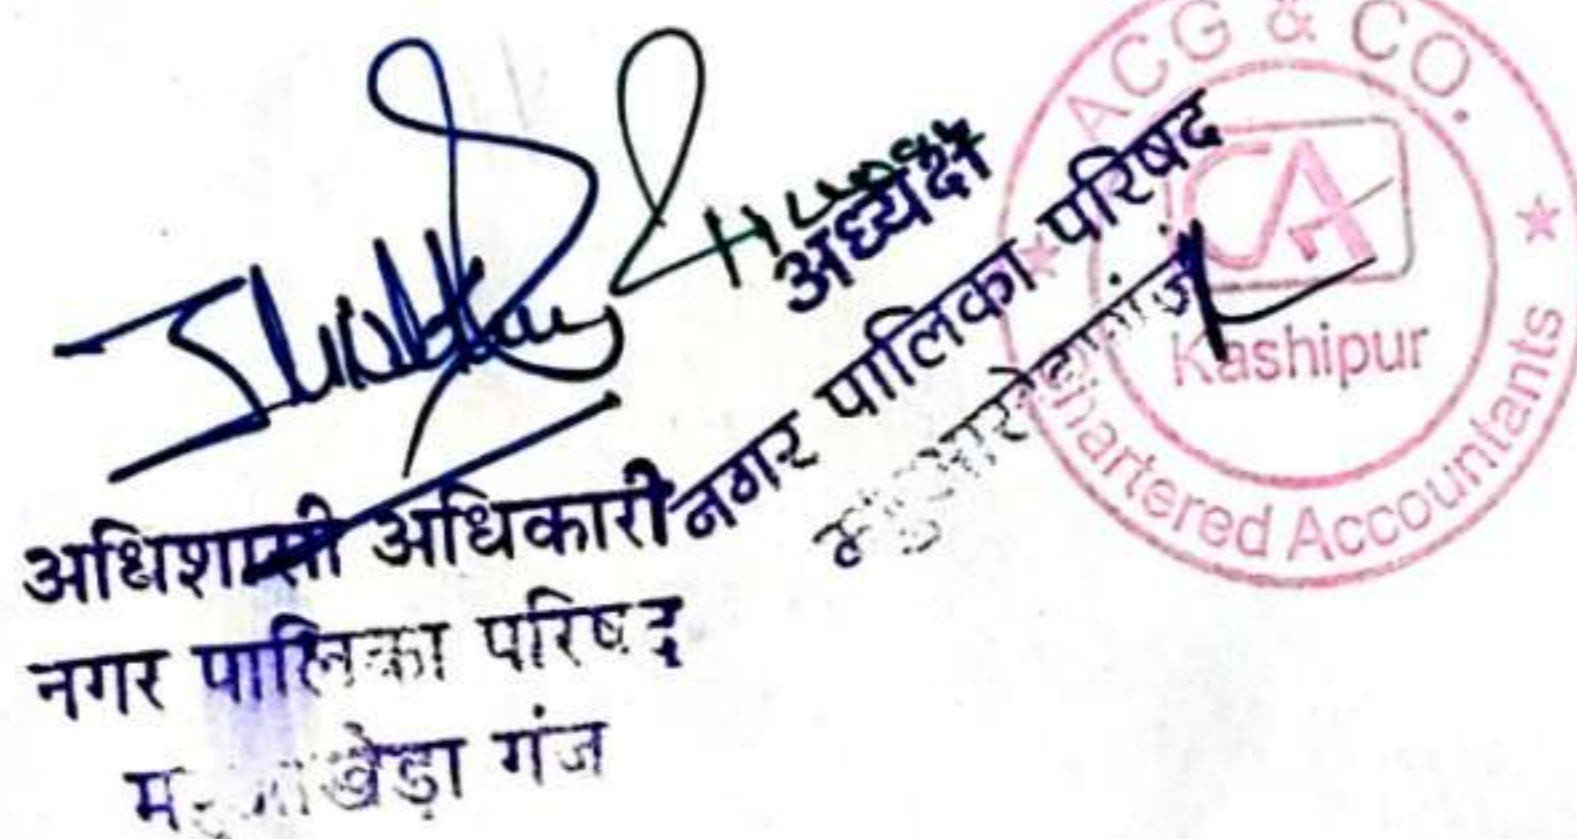 अधिशासी अधिकारी
नगर पालिका परिषद
खेड़ा गंज
अध्यक्ष
नगर पालिका परिषद
ACG & CO.
CA
Kashipur
Chartered Accountants